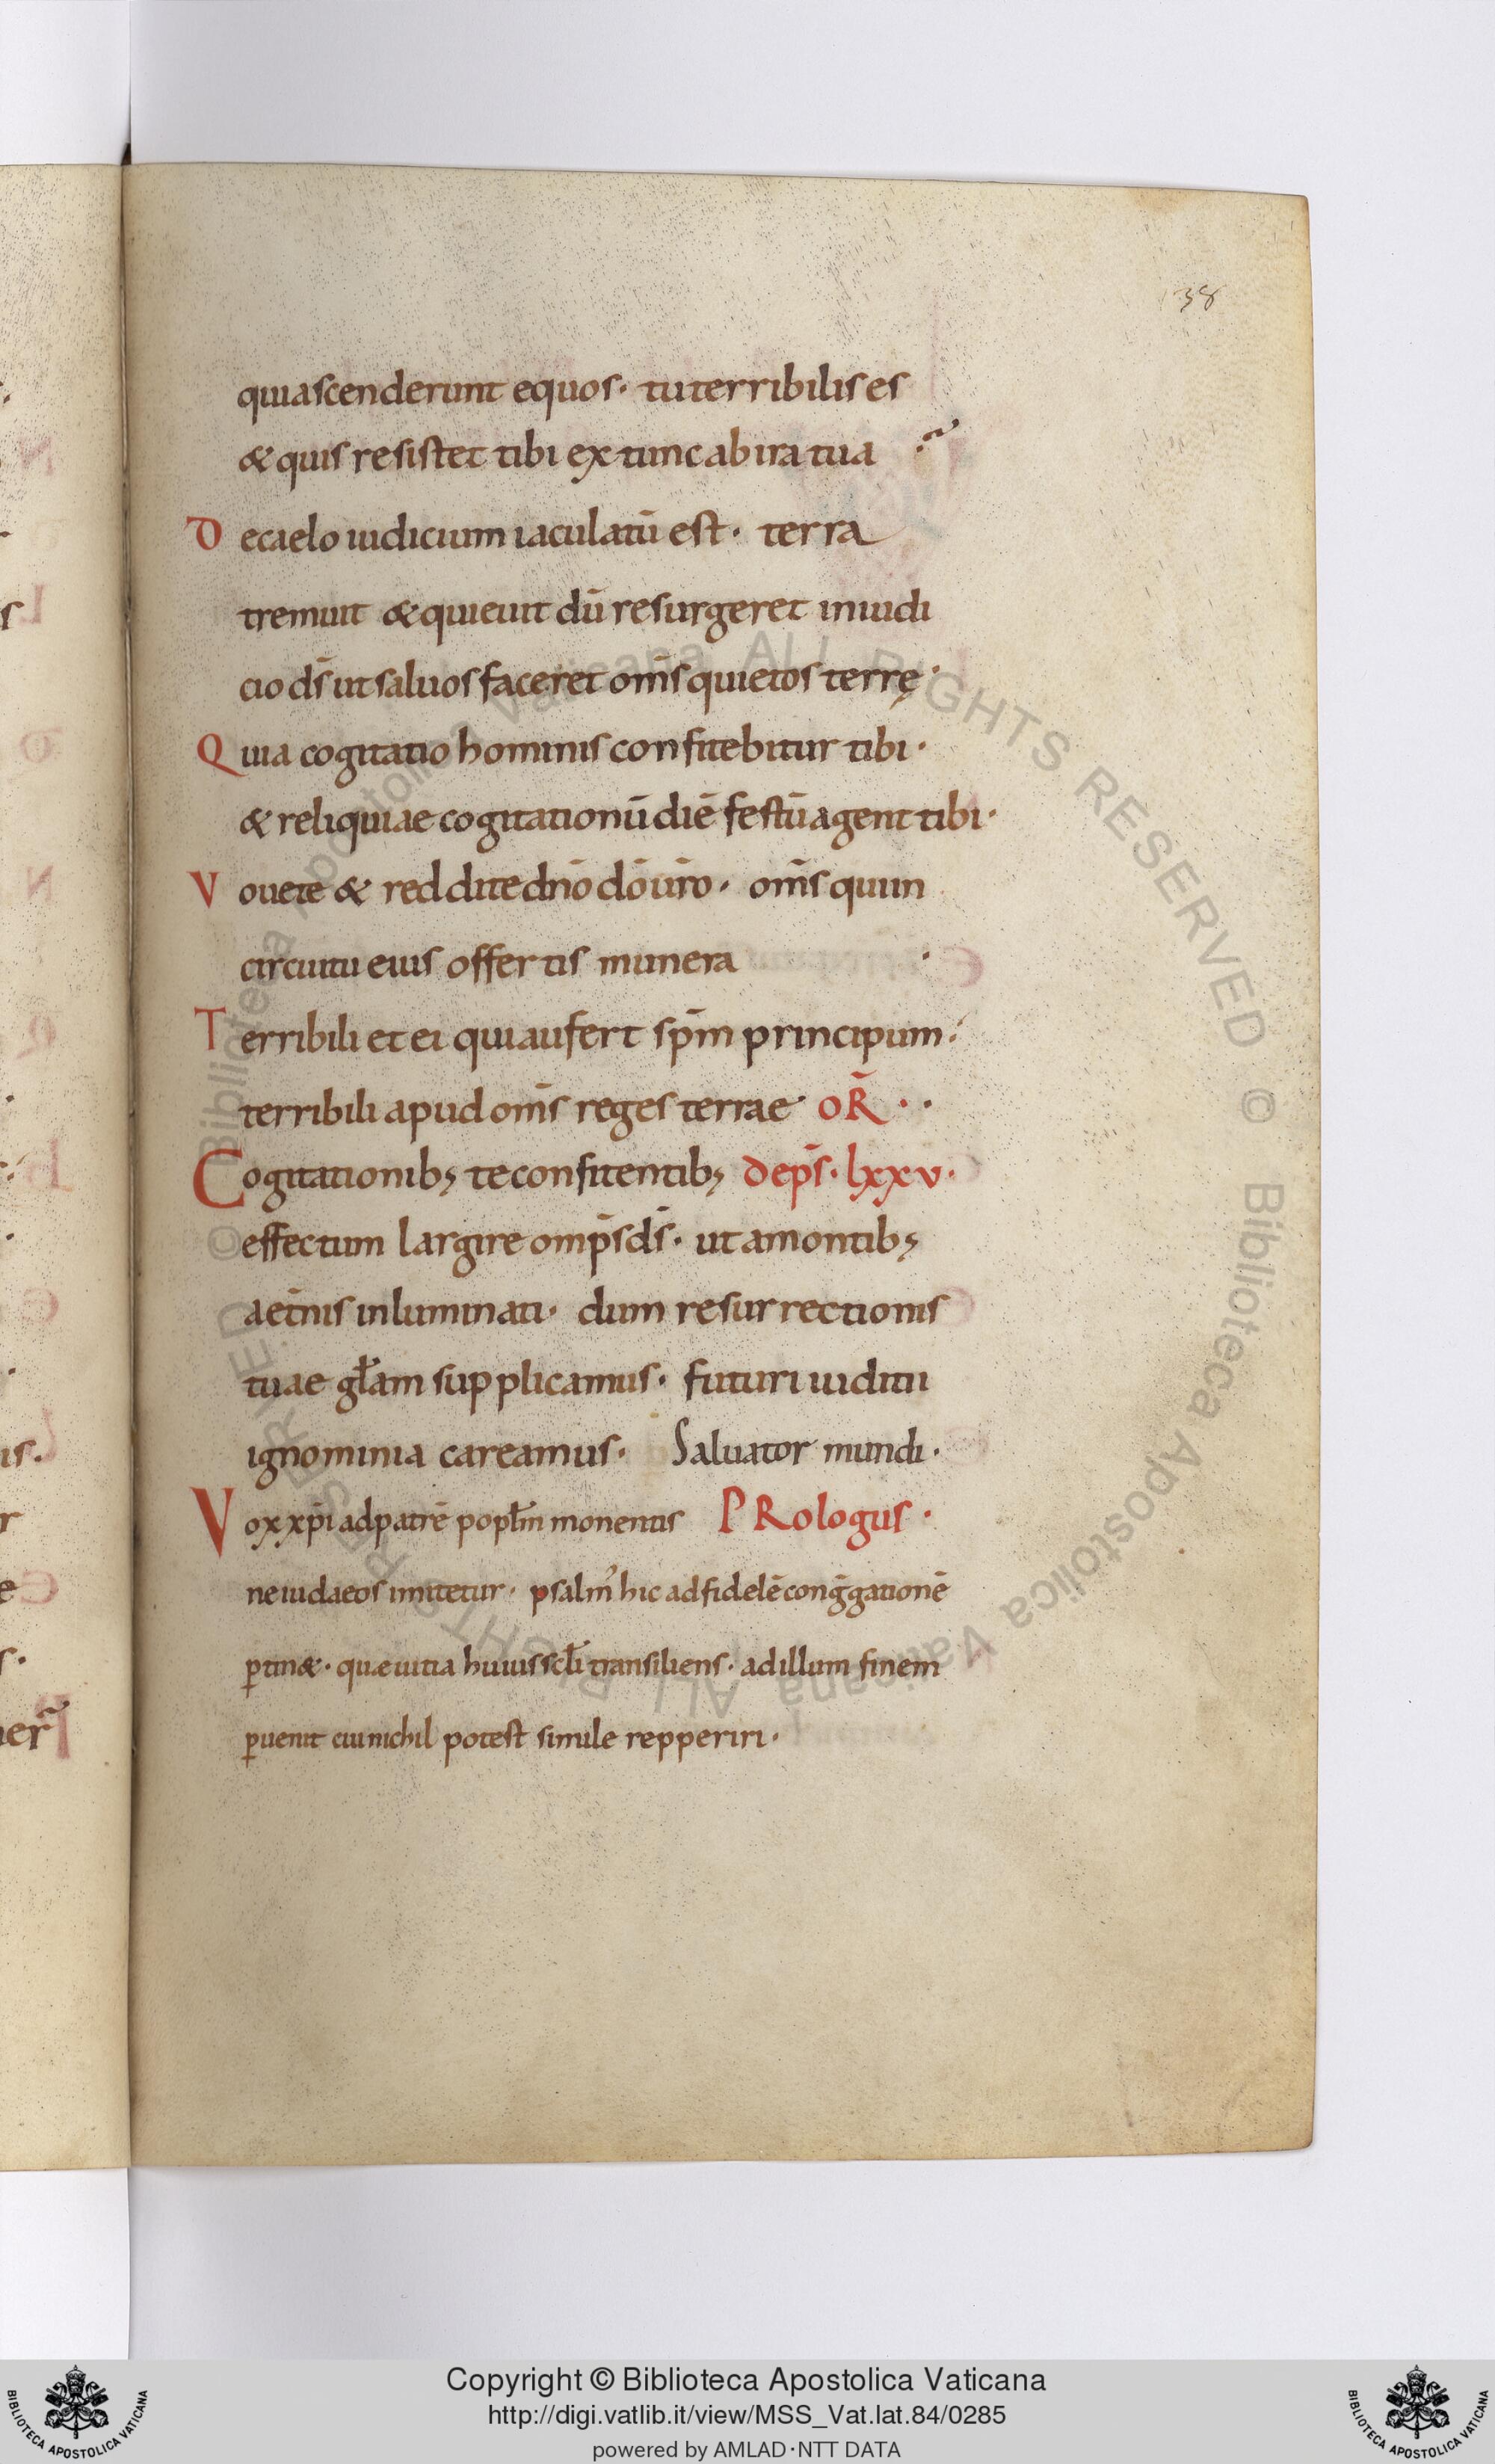 138
qui ascenderunt equos· tu terribilis es
& quis resistet tibi ex tunc ab ira tua
De caelo iudicium iaculatū est· terra
tremuit & quieuit dū resurgeret in iudi
cio d̄s ut saluos faceret om̄s quietos terrę·
Quia cogitatio hominis confitebitur tibi·
& reliquiae cogitationū diē festū agent tibi·
Vouete & reddite dn̄o dō ur̄o· om̄s qui in
circuitu eius offertis munera ·
Terribili et ei qui aufert sp̄m principum·
terribili apud om̄s reges terrae· OR̄··
Cogitationibꝫ te confitentibꝫ de ps̄· lxxv·
effectum largire omp̄s d̄s· ut a montibꝫ
aet̄nis inluminati· dum resurrectionis
tuae gł̄am supplicamus· futuri uiditii
ignominia careamus· Saluator mundi·
Vox xp̄i ad patrē popł̄m monentis PRologus·
ne iudaeos imitetur· psalm᾽ hic ad fidelē congḡationē
ꝑtin&· quae uitia huius scł̄i transiliens· ad illum finem
ꝑuenit cui nichil potest simile repperiri·
Copyright © Biblioteca Apostolica Vaticana
http://digi.vatlib.it/view/MSS_Vat.lat.84/0285
powered by AMLAD·NTT DATA
BIBLIOTECA APOSTOLICA VATICANA
BIBLIOTECA APOSTOLICA VATICANA
© Biblioteca Apostolica Vaticana ALL RIGHTS RESERVED © Biblioteca Apostolica Vaticana ALL RIGHTS RESERVED